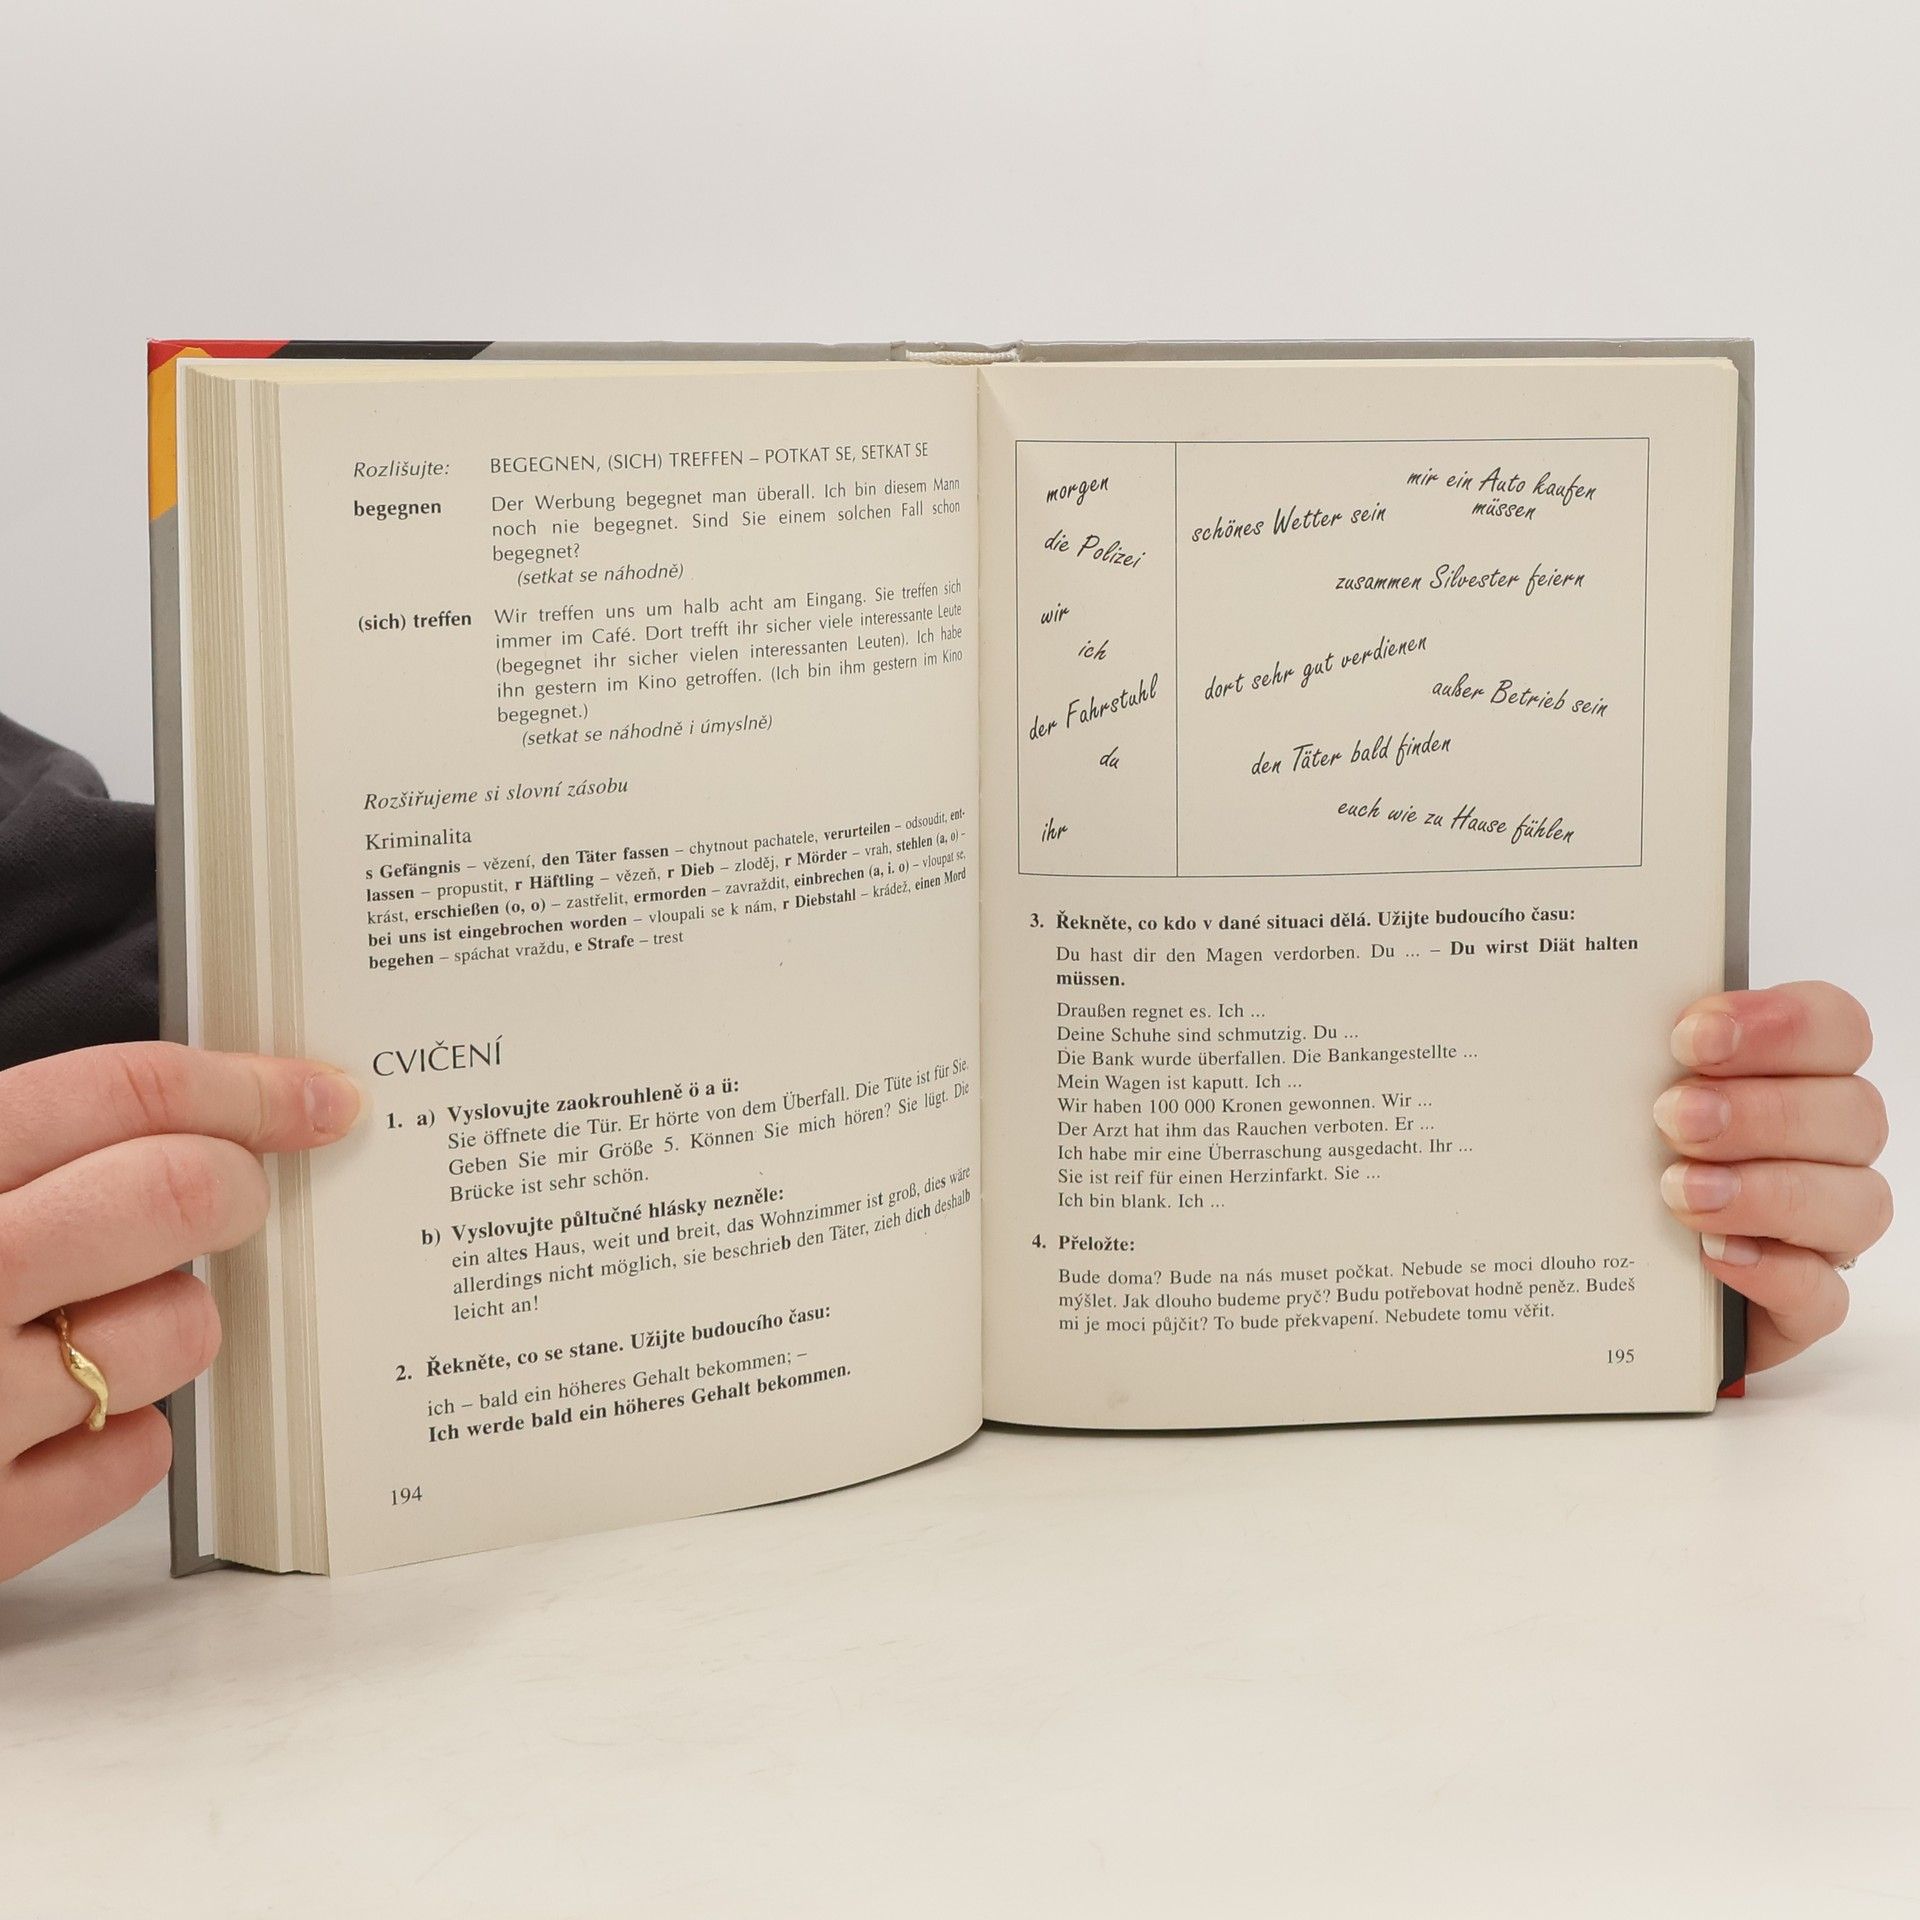 Rozlišujte: BEGEGNEN, (SICH) TREFFEN – POTKAT SE, SETKAT SE
begegnen Der Werbung begegnet man überall. Ich bin diesem Mann
noch nie begegnet. Sind Sie einem solchen Fall schon
begegnet?
(setkat se náhodně)
(sich) treffen Wir treffen uns um halb acht am Eingang. Sie treffen sich
immer im Café. Dort trefft ihr sicher viele interessante Leute
(begegnet ihr sicher vielen interessanten Leuten). Ich habe
ihn gestern im Kino getroffen. (Ich bin ihm gestern im Kino
begegnet.)
(setkat se náhodně i úmyslně)
Rozšiřujeme si slovní zásobu
Kriminalita
s Gefängnis – vězení, den Täter fassen – chytnout pachatele, verurteilen – odsoudit, ent-
lassen – propustit, r Häftling – vězeň, r Dieb – zloděj, r Mörder – vrah, stehlen (a, o) –
krást, erschießen (o, o) – zastřelit, ermorden – zavraždit, einbrechen (a, i. o) – vloupat se,
bei uns ist eingebrochen worden – vloupali se k nám, r Diebstahl – krádež, einen Mord
begehen – spáchat vraždu, e Strafe – trest
CVIČENÍ
1. a) Vyslovujte zaokrouhleně ö a ü:
Sie öffnete die Tür. Er hörte von dem Überfall. Die Tüte ist für Sie.
Geben Sie mir Größe 5. Können Sie mich hören? Sie lügt. Die
Brücke ist sehr schön.
b) Vyslovujte půltučné hlásky nezněle:
ein altes Haus, weit und breit, das Wohnzimmer ist groß, dies wäre
allerdings nicht möglich, sie beschrieb den Täter, zieh dich deshalb
leicht an!
2. Řekněte, co se stane. Užijte budoucího času:
ich – bald ein höheres Gehalt bekommen; –
Ich werde bald ein höheres Gehalt bekommen.
194
morgen
die Polizei
wir
ich
der Fahrstuhl
du
ihr
mir ein Auto kaufen
müssen
schönes Wetter sein
zusammen Silvester feiern
dort sehr gut verdienen
außer Betrieb sein
den Täter bald finden
euch wie zu Hause fühlen
3. Řekněte, co kdo v dané situaci dělá. Užijte budoucího času:
Du hast dir den Magen verdorben. Du ... – Du wirst Diät halten
müssen.
Draußen regnet es. Ich ...
Deine Schuhe sind schmutzig. Du ...
Die Bank wurde überfallen. Die Bankangestellte ...
Mein Wagen ist kaputt. Ich ...
Wir haben 100 000 Kronen gewonnen. Wir ...
Der Arzt hat ihm das Rauchen verboten. Er ...
Ich habe mir eine Überraschung ausgedacht. Ihr ...
Sie ist reif für einen Herzinfarkt. Sie ...
Ich bin blank. Ich ...
4. Přeložte:
Bude doma? Bude na nás muset počkat. Nebude se moci dlouho roz-
mýšlet. Jak dlouho budeme pryč? Budu potřebovat hodně peněz. Budeš
mi je moci půjčit? To bude překvapení. Nebudete tomu věřit.
195